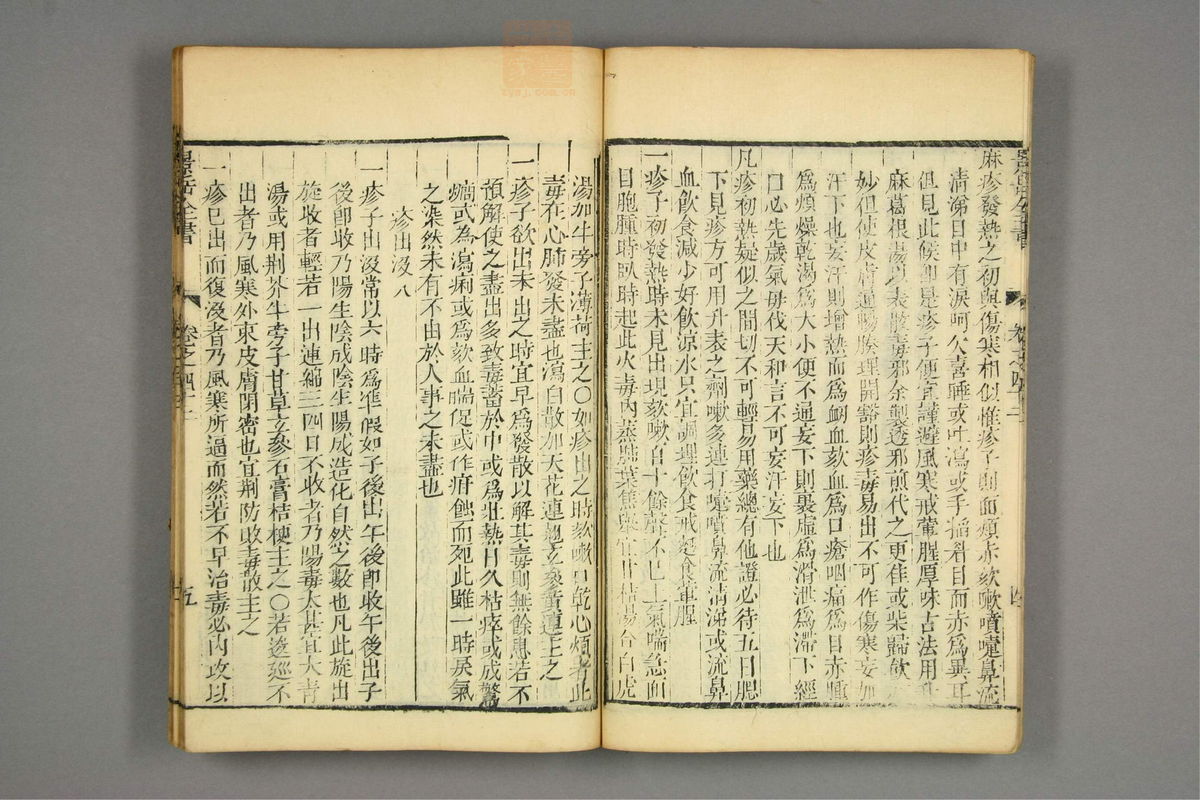 麻疹發熱之初與傷寒相似惟疹子則面頰赤欬嗽噴嚏鼻流
清涕目中有淚呵欠喜睡或吐瀉或手搯眉目面赤爲異耳
但見此候即是疹子便宜謹避風寒戒葷腥厚味古法用升
麻葛根湯以表散毒邪余製透邪煎代之更佳或柴歸飲
妙但使皮膚通暢腠理開豁則疹毒易出不可作傷寒妄加
汗下也妄汗則增熱而爲衂血欬血爲口瘡咽痛爲目赤腫
爲煩燥乾渴爲大小便不通妄下則裏虛爲滑泄爲滯下經
曰必先歲氣毋伐天和言不可妄汗妄下也
凡疹初熱疑似之間切不可輕易用藥總有他證必待五日腮
下見疹方可用升表之劑嗽多連打嚏噴鼻流清涕或流鼻
血飲食減少好飲涼水只宜調理飲食戒葷腥
一疹子初發熱時未見出現欬嗽百十餘聲不已上氣喘急面
目胞腫時臥時起此火毒內蒸肺葉焦舉宜甘桔湯合白虎
湯加牛旁子薄荷主之〇如疹出之時欬嗽口乾心煩者此
毒在心肺發未盡也瀉白散加天花連翹玄參黃連主之
一疹子欲出未出之時宜早爲發散以解其毒則無餘患若不
預解使之盡出多致毒蓄於中或爲壯熱日久枯瘁或成驚
癇或為瀉痢或爲欬血喘促或作疳蝕而死此雖一時戾氣
之染然未有不由於人事之未盡也
疹出沒 八
一疹子出沒常以六時爲準假如子後出午後即收午後出子
後即收乃陽生陰成陰生陽成造化自然之數也凡此旋出
旋收者輕若一出連綿三四日不收者乃陽毒太甚宜大青
湯或用荆芥牛旁子甘草玄參石膏桔梗主之〇若逡巡不
出者乃風寒外束皮膚閉密也宜荆防敗毒散主之
一疹已出而復沒者乃風寒所逼而然若不早治毒必內攻以
卷之四十三